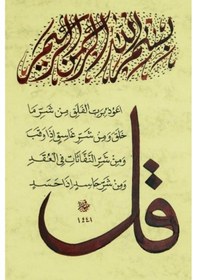 بسم الله الرحمن الرحيم
قل
اعوذ برب الفلق من شر ما
خلق ومن شر غاسق اذا وقب
ومن شر النفاثات في العقد
ومن شر حاسد اذا حسد